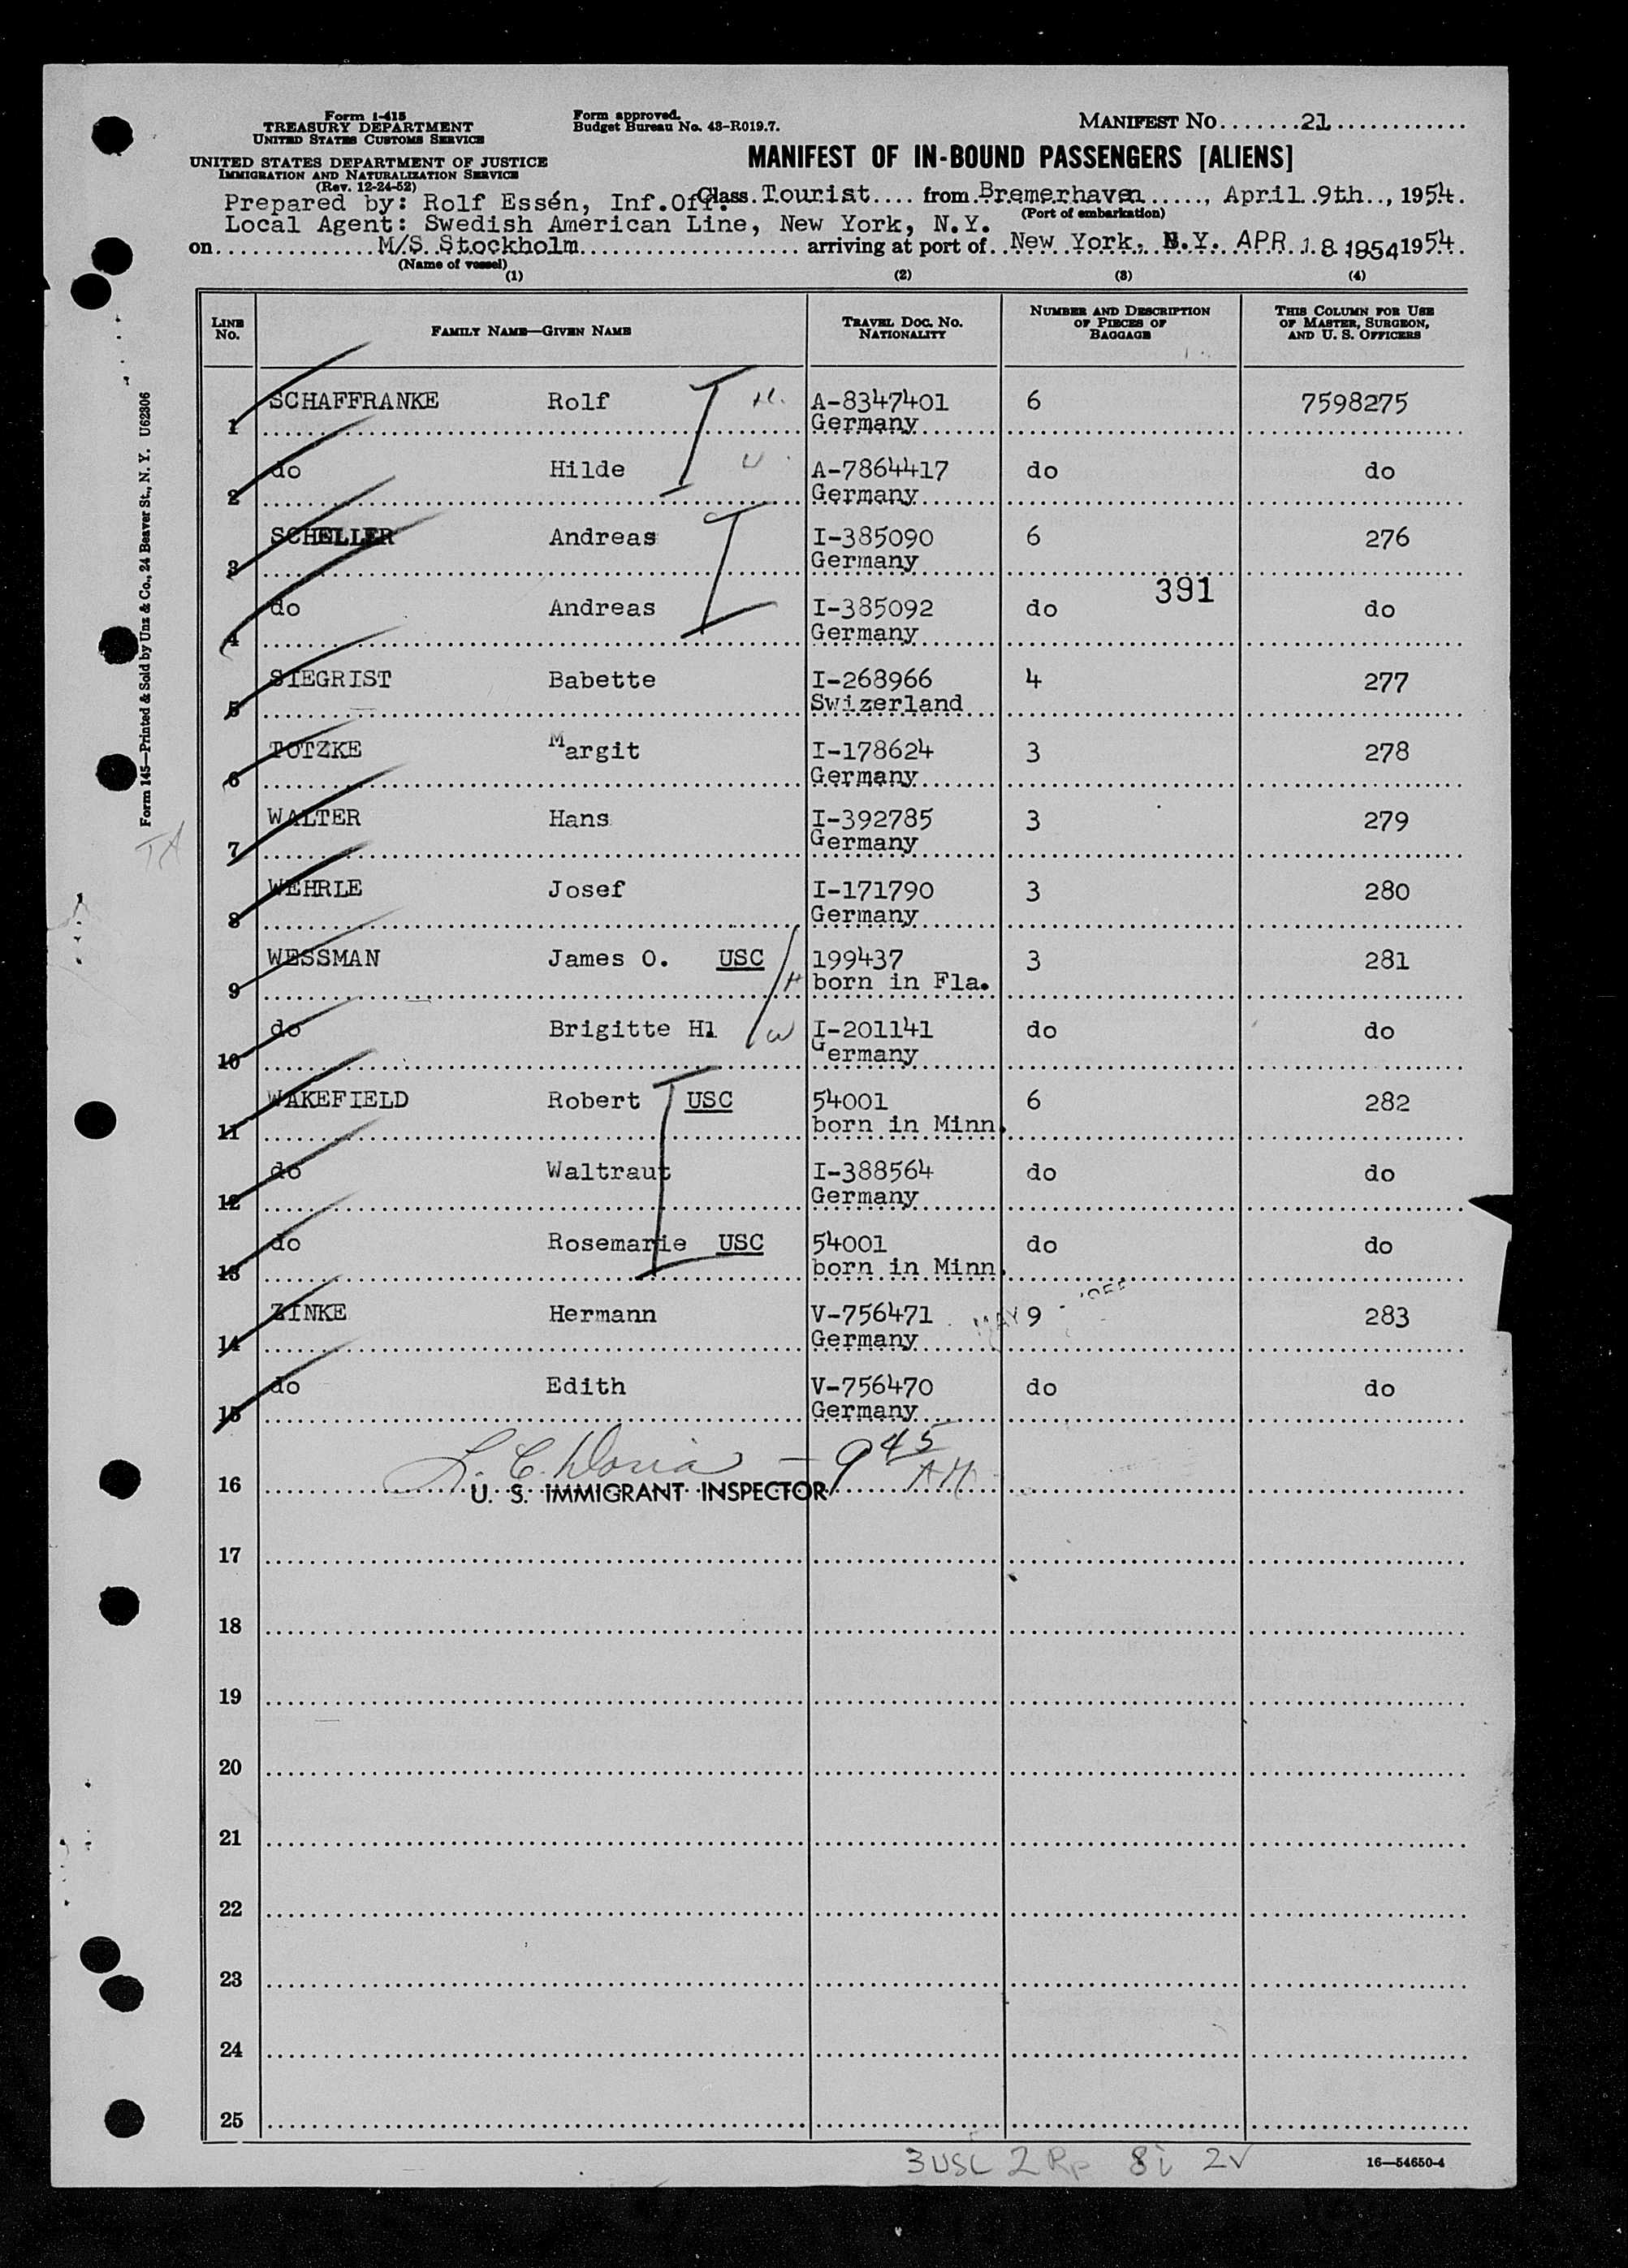 Form I-415
TREASURY DEPARTMENT
UNITED STATES CUSTOMS SERVICE
Form approved.
Budget Bureau No. 43-R019.7.
MANIFEST NO.......21.............
UNITED STATES DEPARTMENT OF JUSTICE
IMMIGRATION AND NATURALIZATION SERVICE
(Rev. 12-24-52)
MANIFEST OF IN-BOUND PASSENGERS [ALIENS]
Prepared by: Rolf Essén, Inf.Off. Class Tourist.... from Bremerhaven......, April 9th.., 1954.
(Port of embarkation)
Local Agent: Swedish American Line, New York, N.Y.
on...............M/S Stockholm...................... arriving at port of..New York, N.Y. APR 18 1954 1954.
(Name of vessel)
(1) (2) (3) (4)
LINE NO. FAMILY NAME—GIVEN NAME TRAVEL DOC. NO. NATIONALITY NUMBER AND DESCRIPTION OF PIECES OF BAGGAGE THIS COLUMN FOR USE OF MASTER, SURGEON, AND U. S. OFFICERS
1 SCHAFFRANKE Rolf H. A-8347401 6 7598275
Germany
2 do Hilde W A-7864417 do do
Germany
3 SCHELLER Andreas I-385090 6 276
Germany
391
4 do Andreas I-385092 do do
Germany
5 SIEGRIST Babette I-268966 4 277
Swizerland
6 TOTZKE Margit I-178624 3 278
Germany
7 WALTER Hans I-392785 3 279
Germany
8 WEHRLE Josef I-171790 3 280
Germany
9 WESSMAN James O. USC H 199437 3 281
born in Fla.
10 do Brigitte Hl W I-201141 do do
Germany
11 WAKEFIELD Robert USC 54001 6 282
born in Minn.
12 do Waltraut I-388564 do do
Germany
13 do Rosemarie USC 54001 do do
born in Minn.
14 ZINKE Hermann V-756471 MAY 9 283
Germany
15 do Edith V-756470 do do
Germany
L. C. Doria — 9 45 AM
16 U. S. IMMIGRANT INSPECTOR
17
18
19
20
21
22
23
24
25
3 USC 2 Rp 8 i 2 V
16—54650-4
Form 145—Printed & Sold by Unz & Co., 24 Beaver St., N. Y. U62306
TA